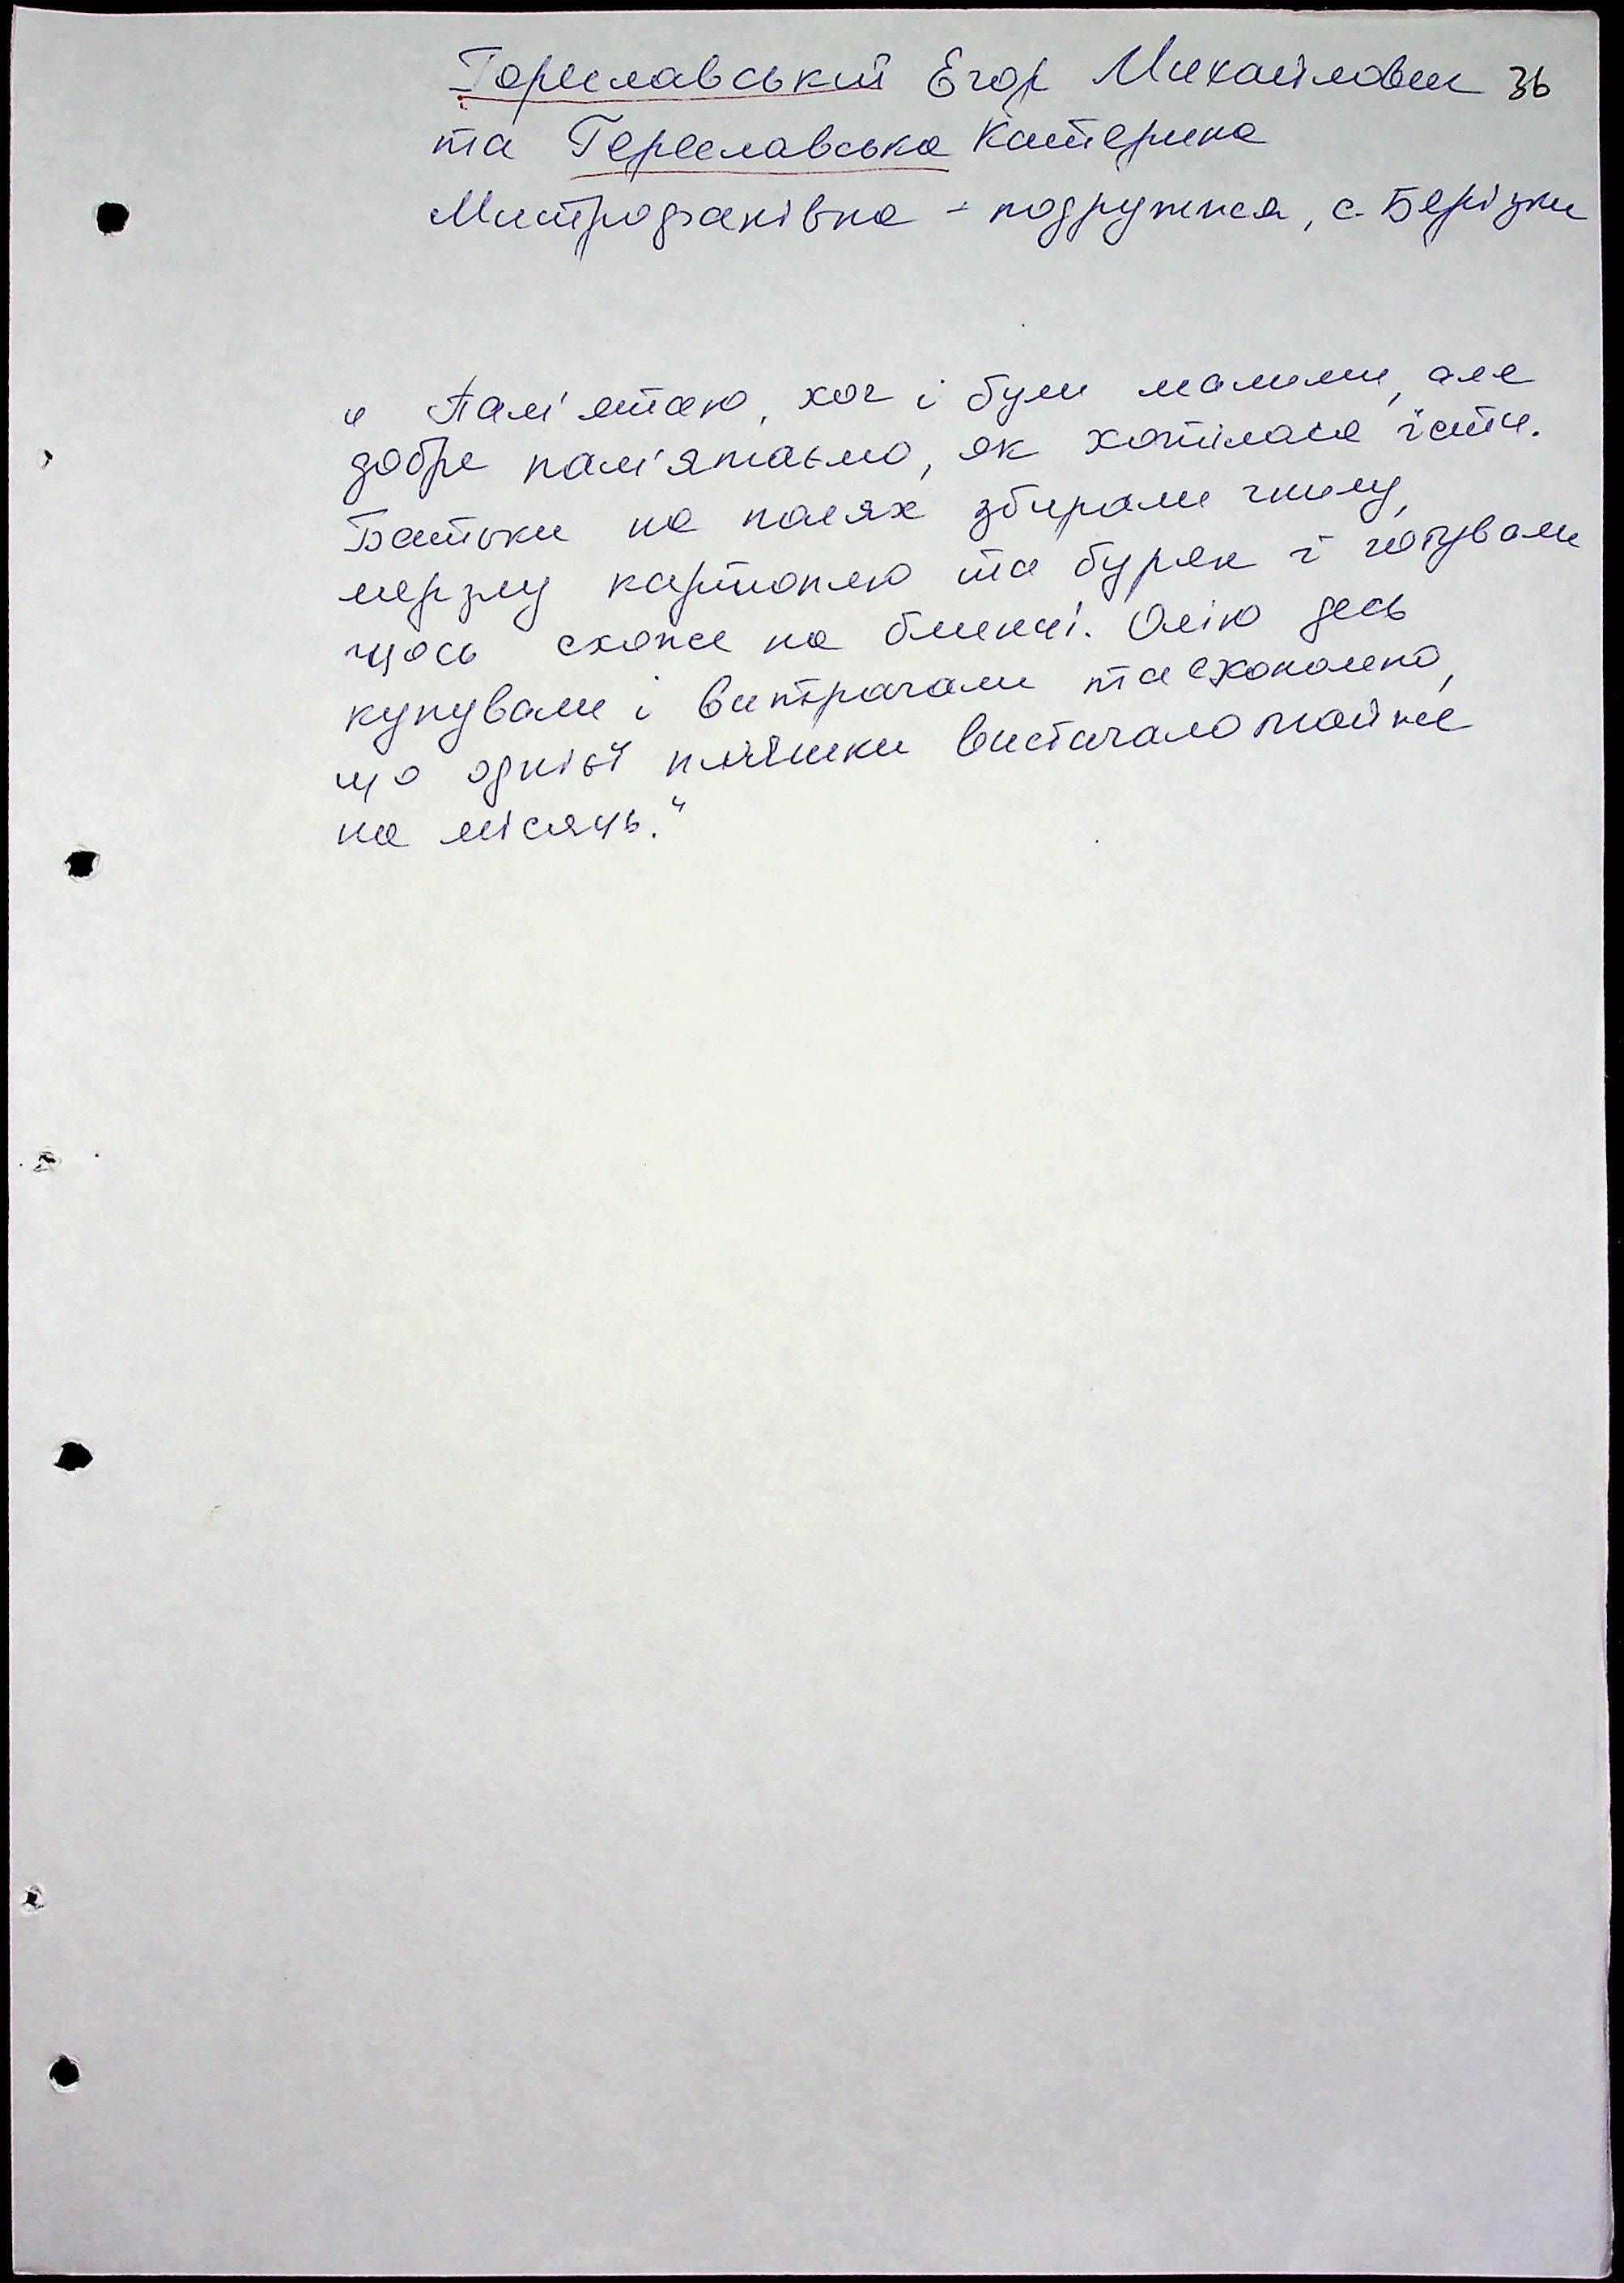 Гореславський Егор Михайлович 36
та Гереславська Катерина
Митрофанівна - подружжя, с. Берізки
"Пам'ятаю, хоч і були малими, але
добре пам'ятаємо, як хотілося їсти.
Батьки на полях збирали гнилу,
мерзлу картоплю та буряк і готували
щось схоже на блинчі. Олію десь
купували і витрачали та економно,
що однієї пляшки вистачало майже
на місяць."